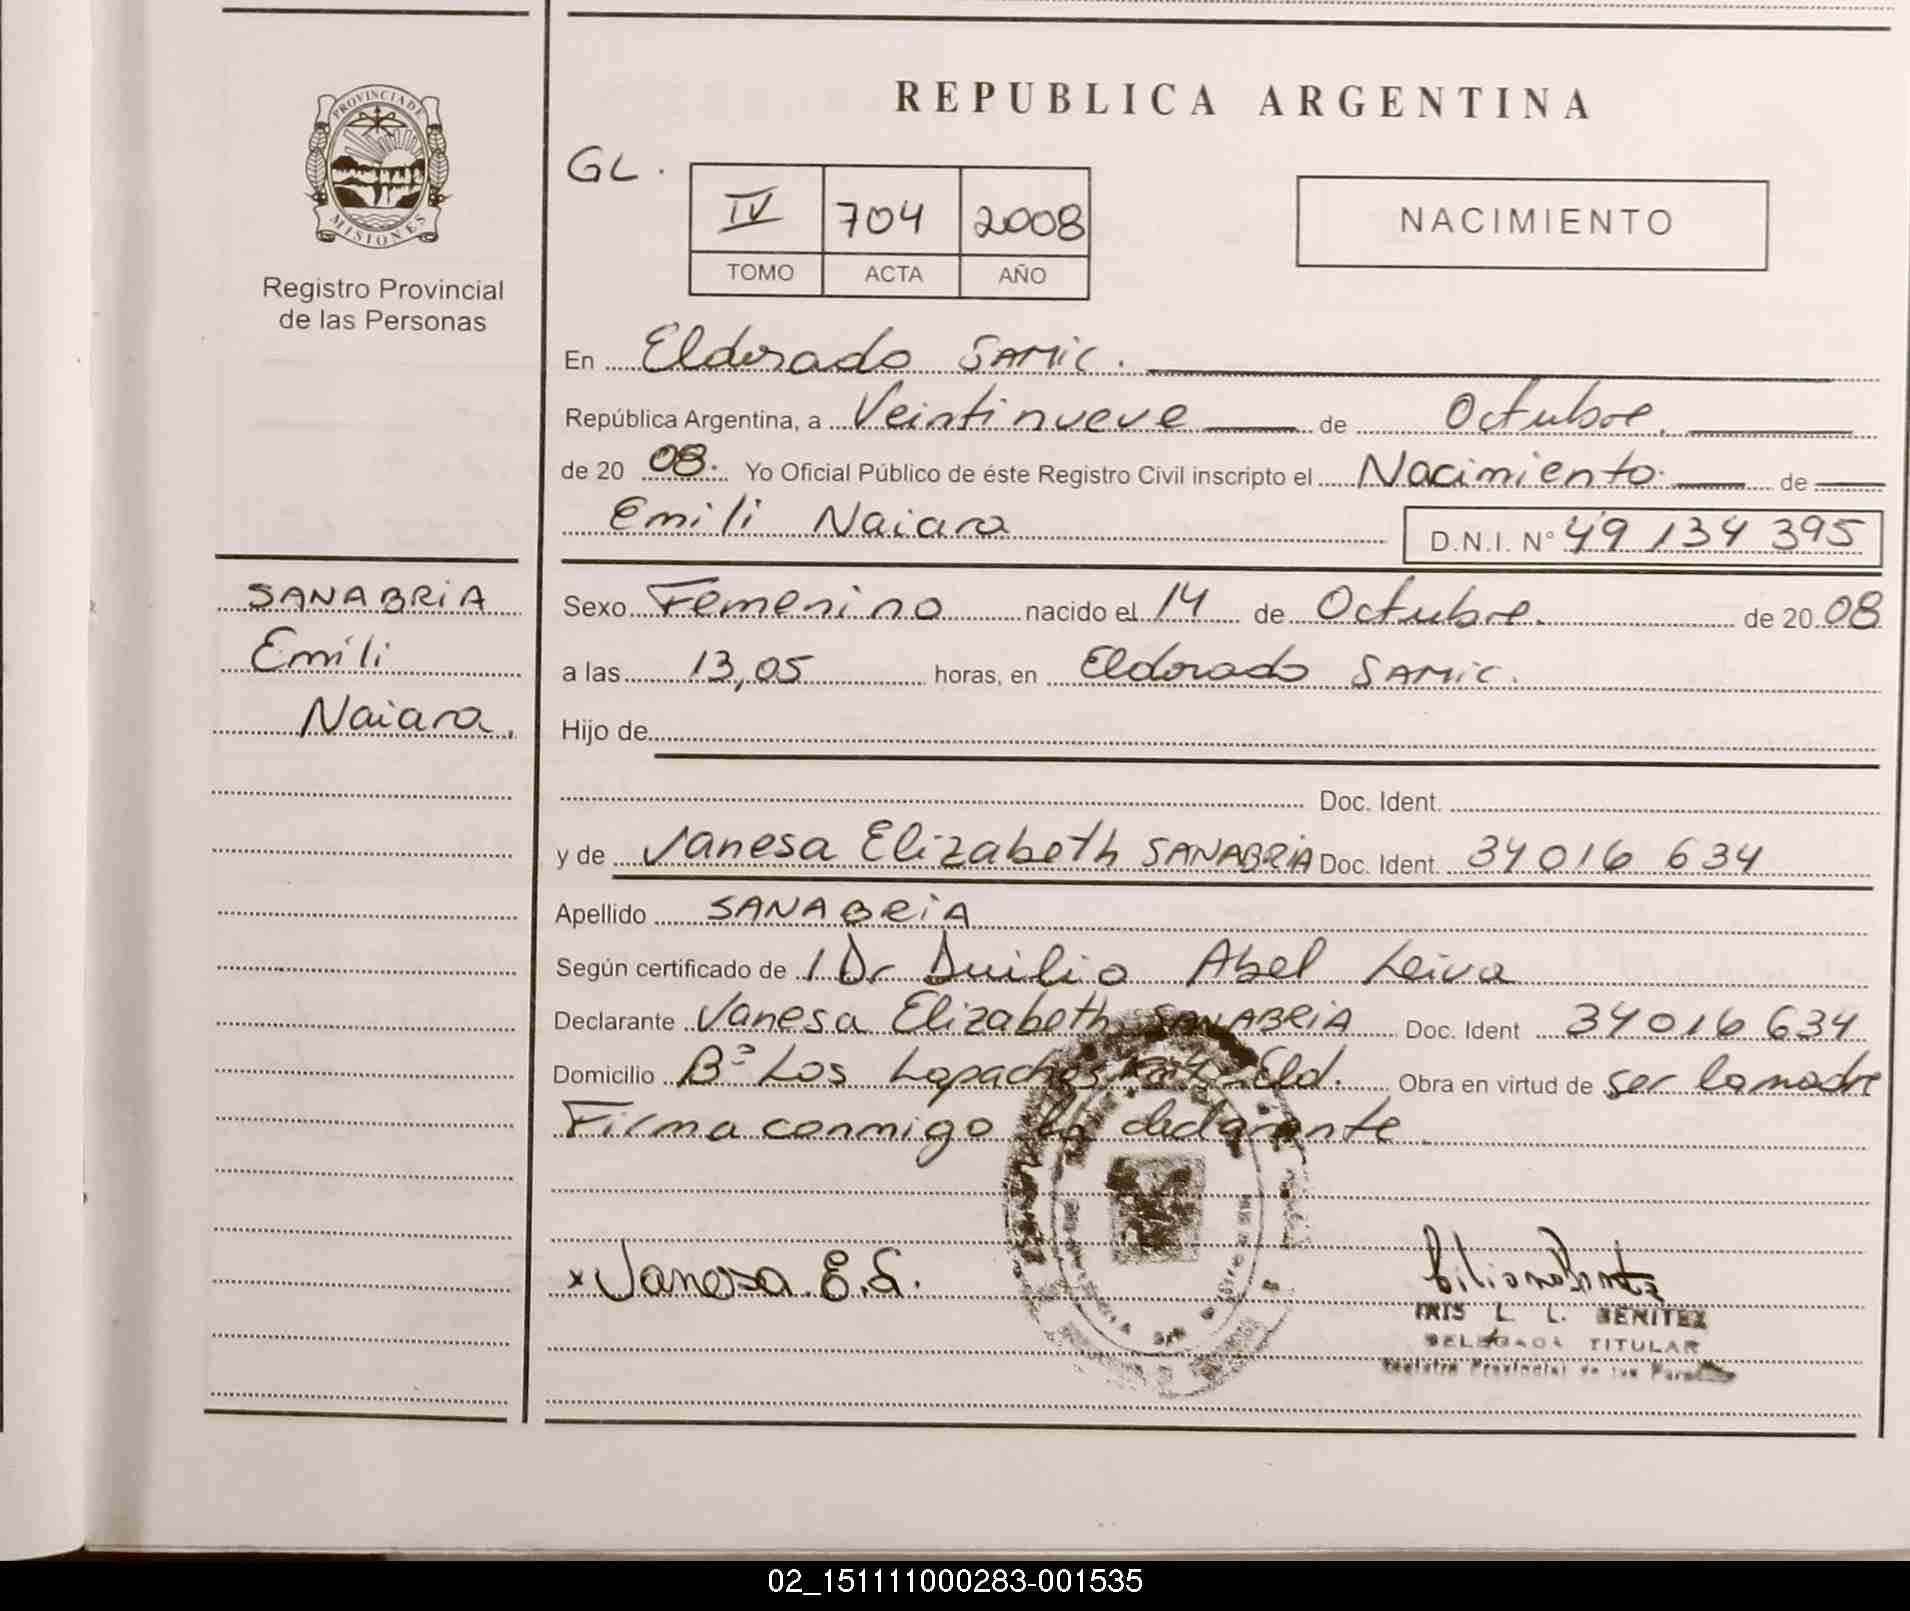 REPUBLICA ARGENTINA
PROVINCIA DE
MISIONES
Registro Provincial
de las Personas
GL.
IV 704 2008
TOMO ACTA AÑO
NACIMIENTO
En Eldorado SAMIC.
República Argentina, a Veintinueve de Octubre.
de 20 08. Yo Oficial Público de éste Registro Civil inscripto el Nacimiento de
Emili Naiara D.N.I. N° 49 134 395
SANABRIA
Emili
Naiara.
Sexo Femenino nacido el 14 de Octubre. de 20 08
a las 13,05 horas, en Eldorado SAMIC.
Hijo de
Doc. Ident.
y de Vanesa Elizabeth SANABRIA Doc. Ident. 34 016 634
Apellido SANABRIA
Según certificado de l Dr Duilio Abel Leiva
Declarante Vanesa Elizabeth SANABRIA Doc. Ident 34 016 634
Domicilio B° Los Lapachos Eld. Obra en virtud de ser la madre
Firma conmigo la declarante
x Vanesa. E. S.
IRIS L. L. BENITEZ
DELEGADA TITULAR
Registro Provincial de las Personas
02_151111000283-001535